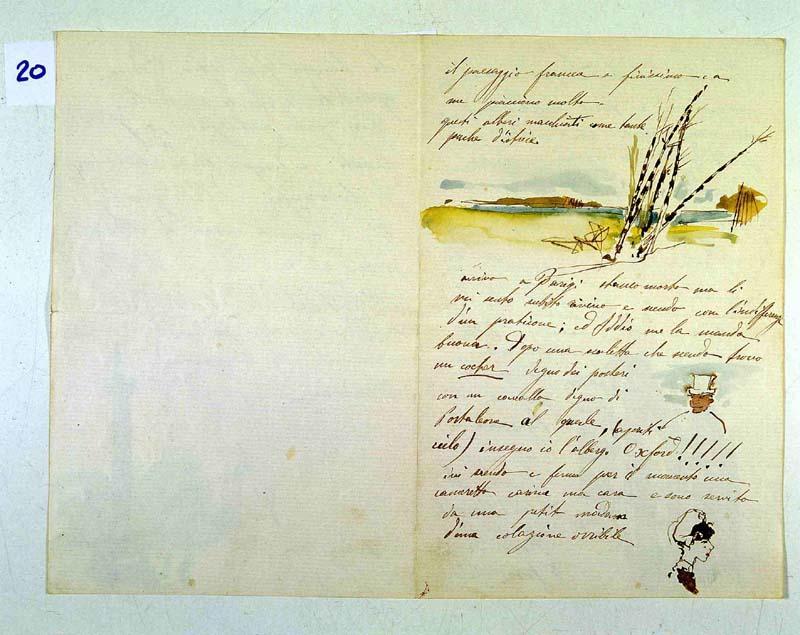 20
il paesaggio francese finissimo e a
me piacciono molto
questi alberi macchiati come tante
penne d'istrice
arrivo a Parigi stanco morto ma lì
mi sento subito vivino e scendo con l'indifferenza
d'un praticone; ed Iddio me la manda
buona. Dopo una scaletta che scendo trovo
un cocher degno dei posteri
con un cavallo degno di
al quale, (aprite
cielo) insegno io l'albergo Oxford!!!!!!
ivi scendo e fermo per il momento una
cameretta carina ma cara e sono servito
da una petit madame
d'una colazione orribile